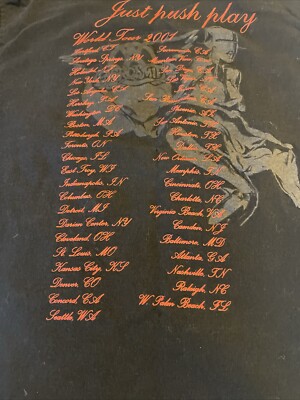 Just push play
World Tour 2001
Hartford, CT
Saratoga Springs, NY
Holmdel, NJ
New York, NY
Los Angeles, CA
Hershey, PA
Washington, DC
Boston, MA
Pittsburgh, PA
Toronto, ON
Chicago, IL
East Troy, WI
Indianapolis, IN
Columbus, OH
Detroit, MI
Darien Center, NY
Cleveland, OH
St. Louis, MO
Kansas City, KS
Denver, CO
Concord, CA
Seattle, WA
Sacramento, CA
Mountain View,
CA
San
Phoenix, AZ
San Antonio, TX
Houston, TX
Dallas, TX
New Orleans, LA
Memphis, TN
Cincinnati, OH
Charlotte, NC
Virginia Beach, VA
Camden, NJ
Baltimore, MD
Atlanta, GA
Nashville, TN
Raleigh, NC
W. Palm Beach, FL